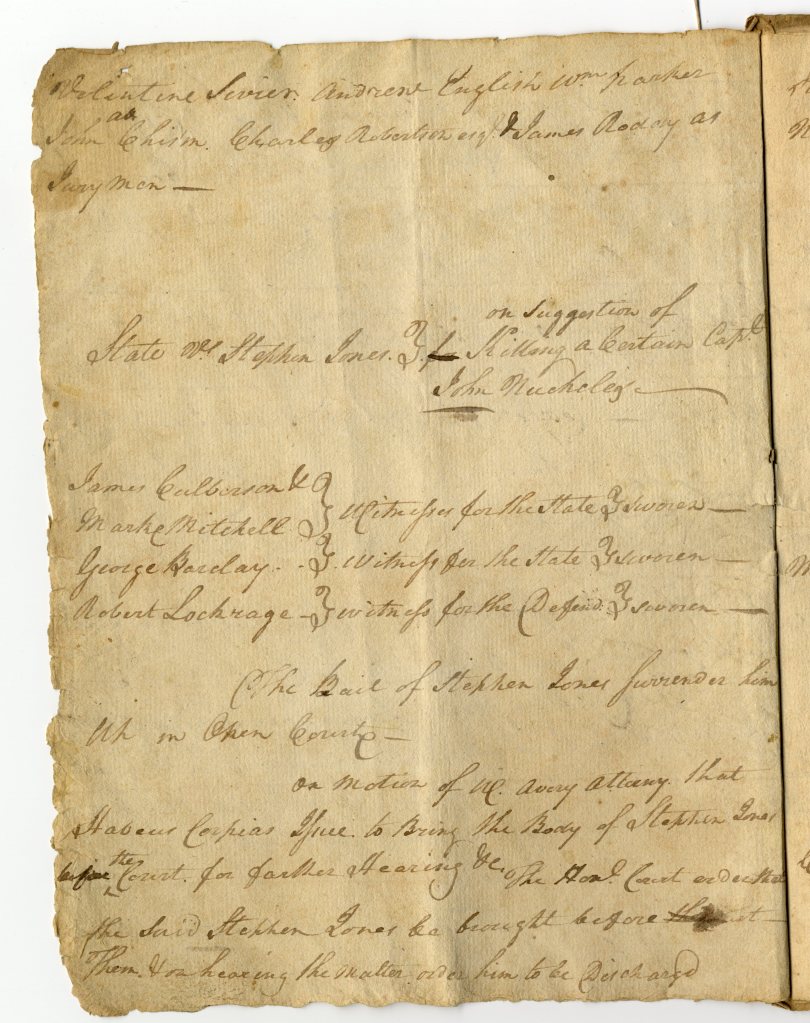 Valentine Sevier. Andrew English Wm Parker
John Chism. Charles Robertson esqr. & James Roddy as
Jury men —
on suggestion of
State vs. Stephen Jones. } Killing a Certain Capt.
John Nuckolos —
James Culberson &
Marke Mitchell } Witnesses for the State } sworen —
George Barclay. - } Witness for the State } sworen —
Robert Lockrage - } witness for the Defend. } sworen —
The Bail of Stephen Jones Surrender him
up in Open Court —
on motion of W. Avory Attony. that
Habeus Corpias Issue to Bring the Body of Stephen Jones
before the Court. for farther Hearing &c. The Hond. Court order that
the said Stephen Jones be brought before
Them. & on hearing the matter order him to be Dischargd